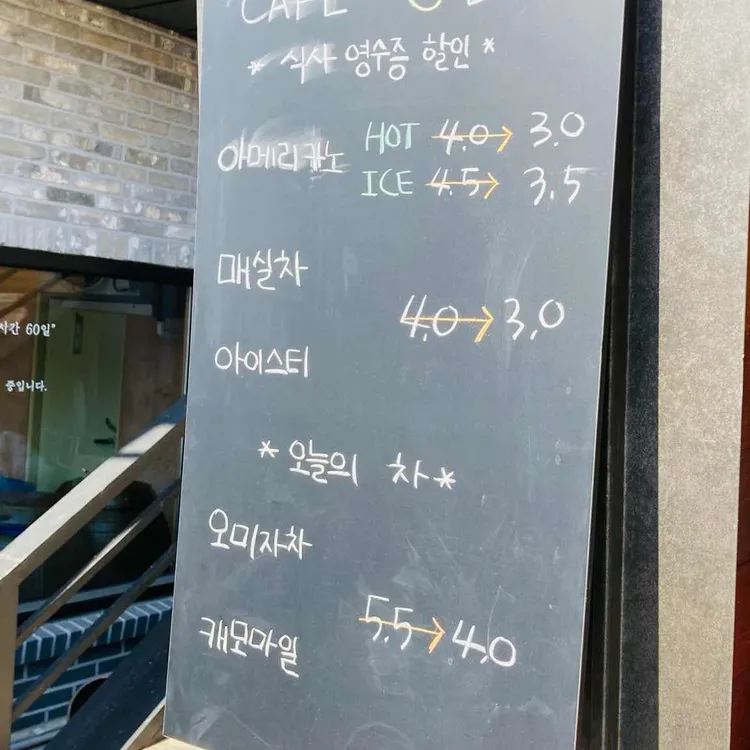 CAFE
* 식사 영수증 할인 *
아메리카노 HOT 4.0→3.0
ICE 4.5→3.5
매실차
4.0→3.0
아이스티
*오늘의 차*
오미자차
5.5→4.0
캐모마일
시간 60일"
중입니다.